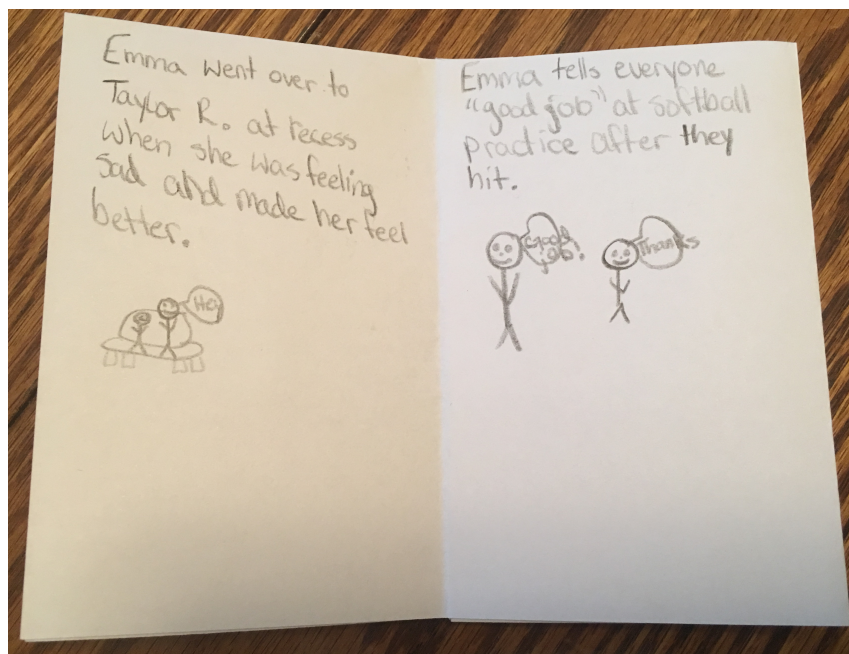 Emma went over to
Taylor R. at recess
when she was feeling
sad and made her feel
better.
Hey
Emma tells everyone
"good job" at softball
practice after they
hit.
Good
job!
Thanks